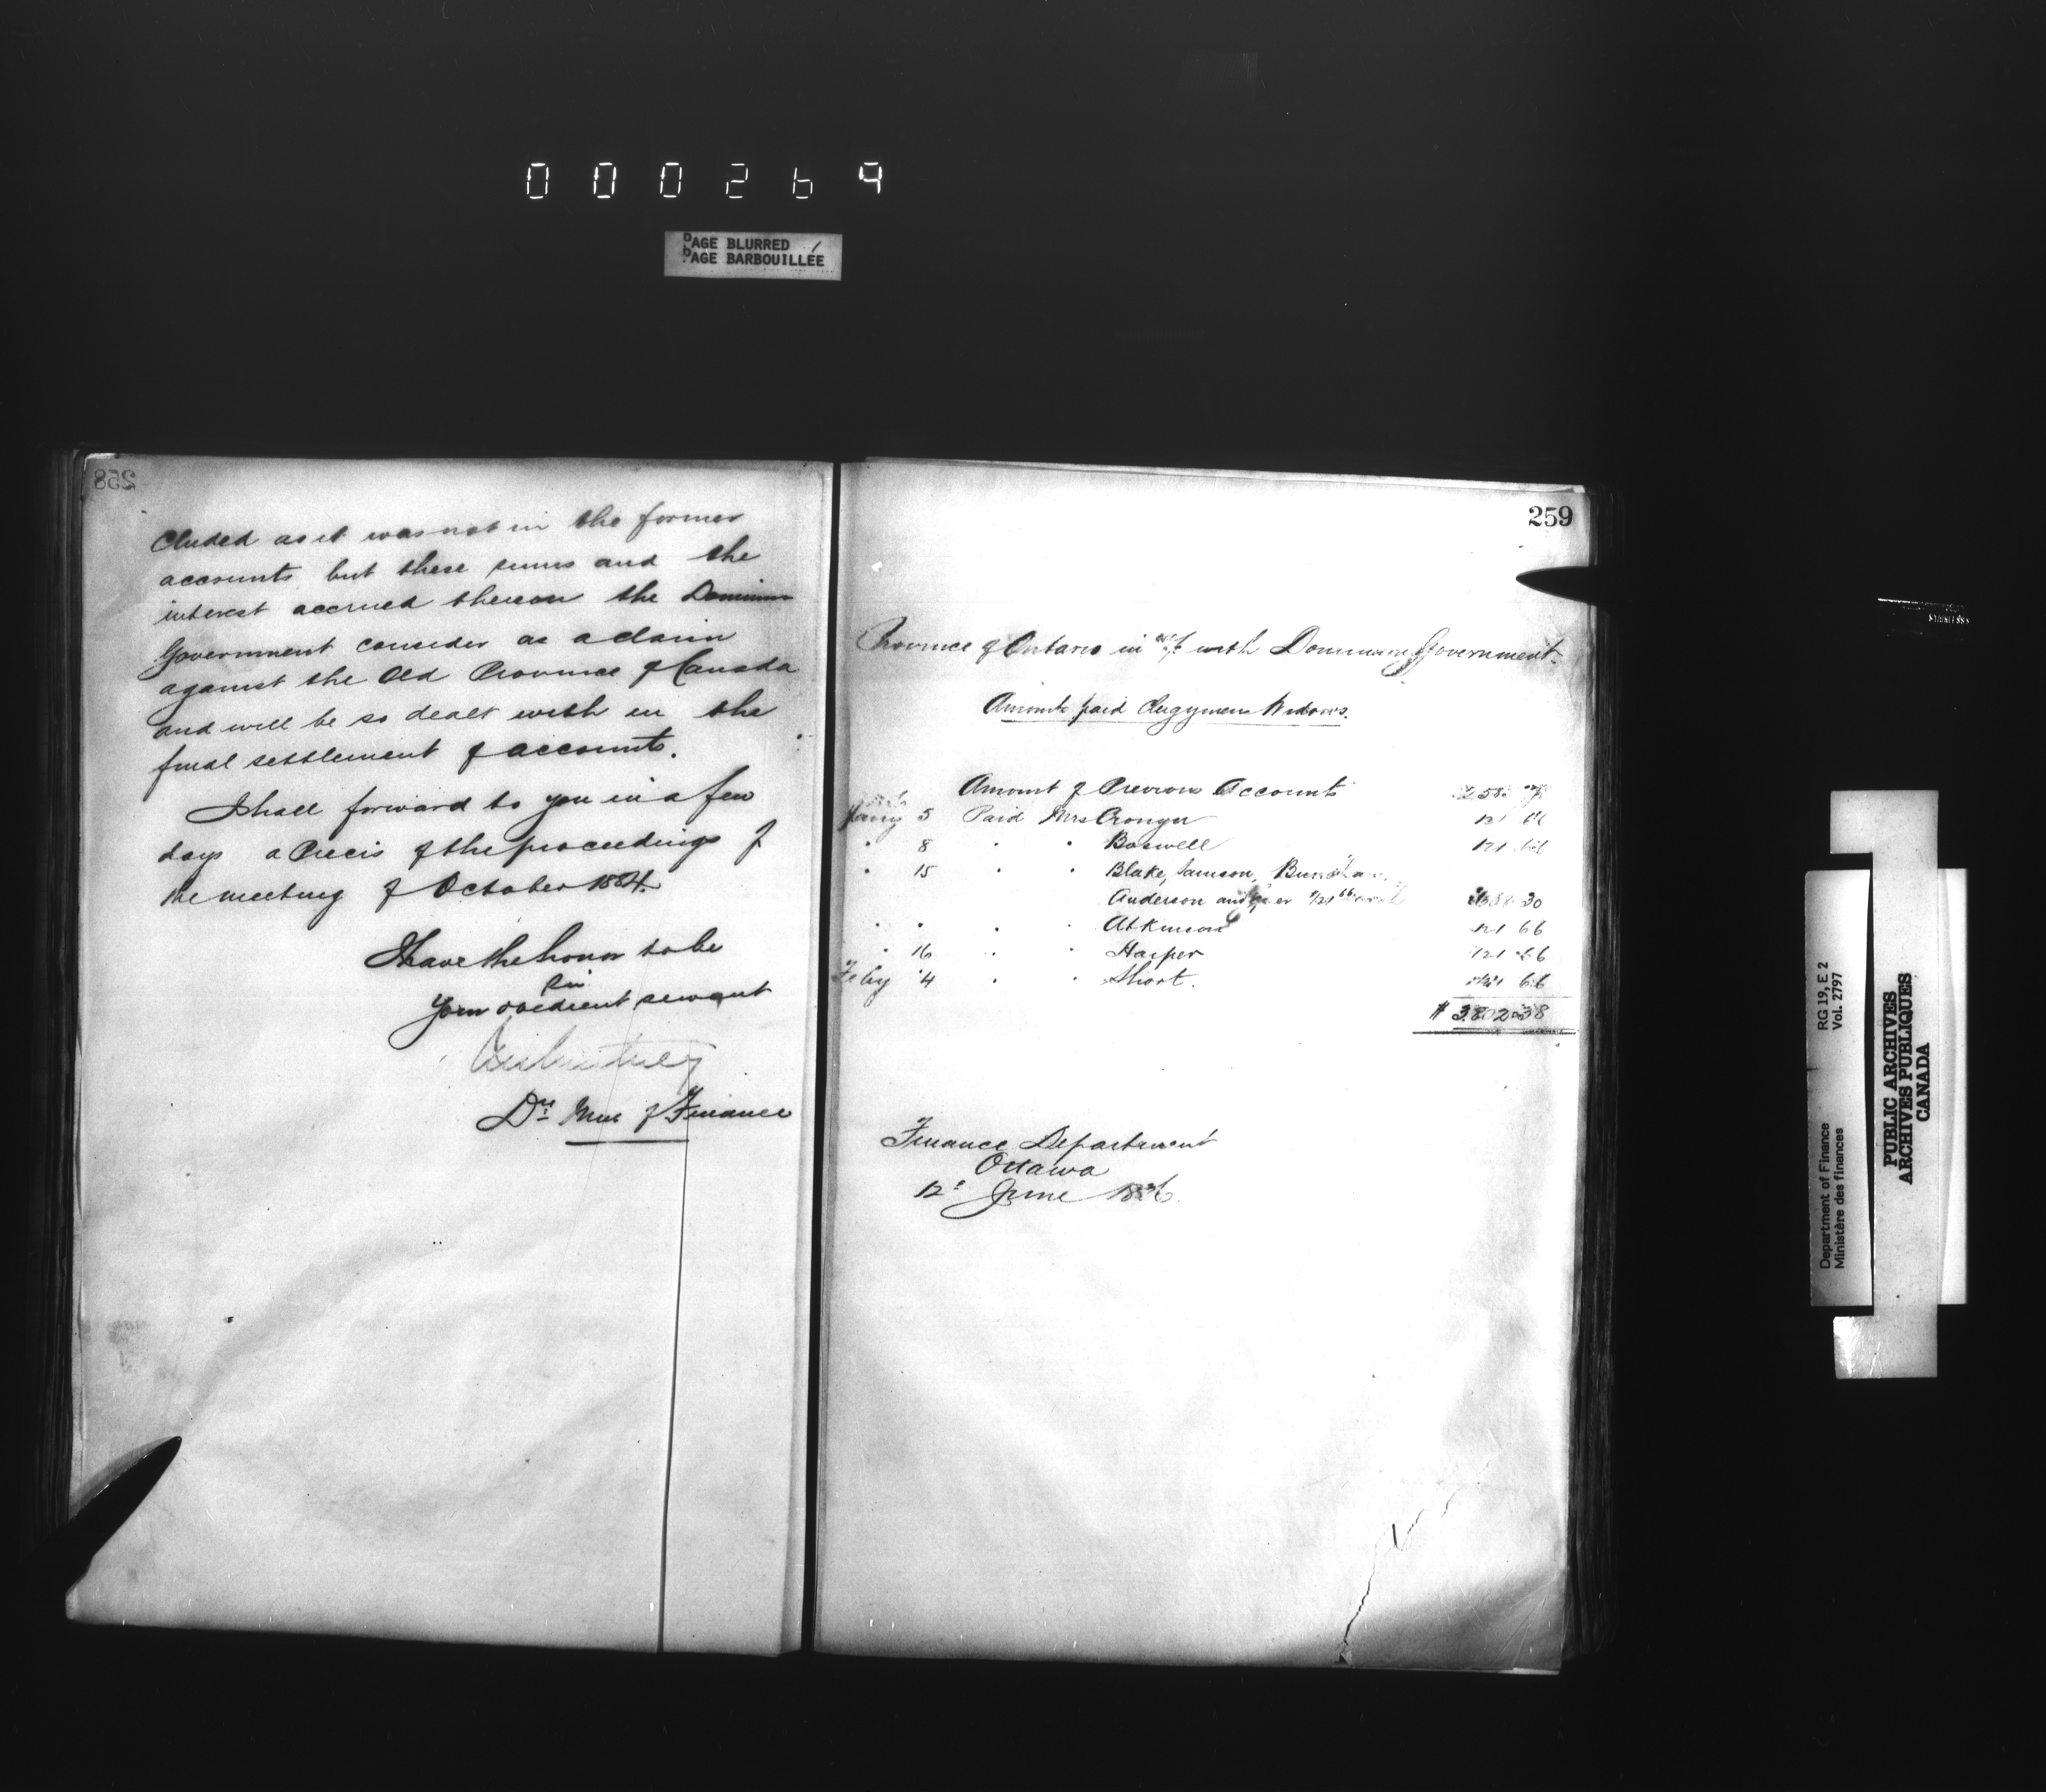 000269
PAGE BLURRED
PAGE BARBOUILLÉE
258
cluded as it was not in the former
accounts but these sums and the
interest accrued thereon the Dominion
Government consider as a claim
against the Old Province of Canada
and will be so dealt with in the
final settlement of accounts.
I shall forward to you in a few
days a Precis of the proceedings of
the meeting of October 1884.
I have the honor to be
Sir
Your obedient servant
Dy Min of Finance
259
Province of Ontario in a/c with Dominion Government.
Amounts paid Clergymen Widows.
Amount of Previous Accounts
Jany 5 Paid Mrs Cronyn 121 66
" 8 " " Boswell 121 66
" 15 " " Blake, Samson,
Anderson and 30
" " " " Atkinson 121 66
" 16 " " Harper 121 66
Feby 4 " " Short. 66
$ 3802 38
Finance Department
Ottawa
12th June 1886.
RG 19, E 2
Vol. 2797
PUBLIC ARCHIVES
ARCHIVES PUBLIQUES
CANADA
Department of Finance
Ministère des finances